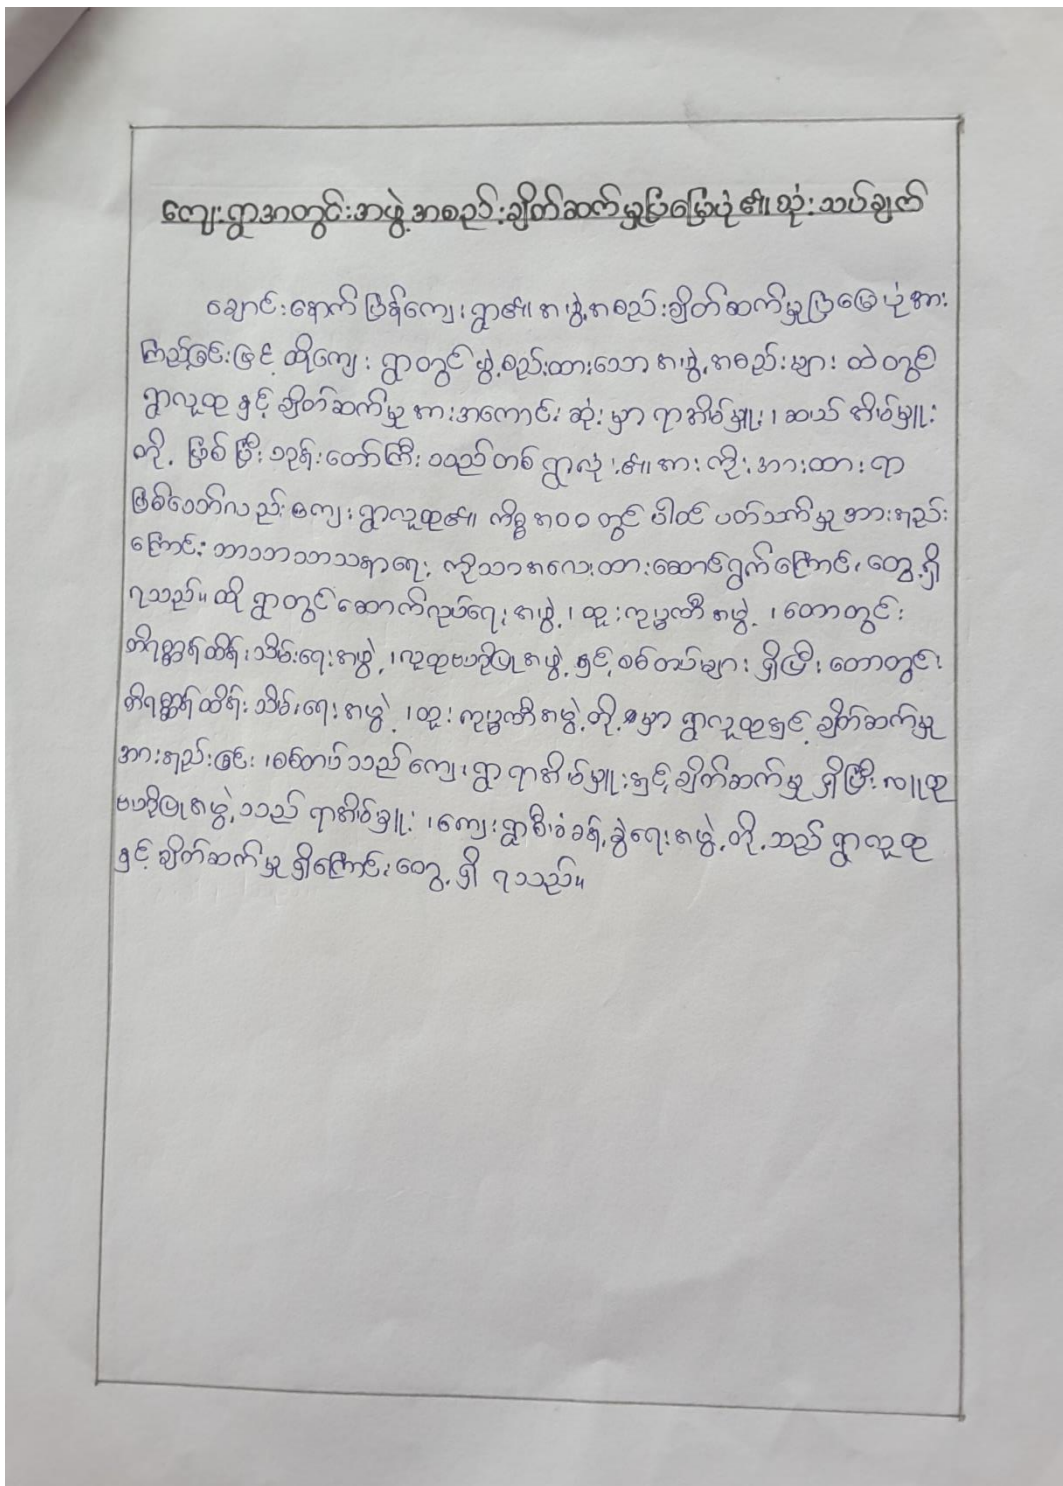 ကျေးရွာအတွင်းအဖွဲ့အစည်းချိတ်ဆက်မှုပြမြေပုံ၏သုံးသပ်ချက်
ချောင်းနောက်ပြန်ကျေးရွာ၏အဖွဲ့အစည်းချိတ်ဆက်မှုပြမြေပုံအား
ကြည့်ခြင်းဖြင့် ထိုကျေးရွာတွင် ဖွဲ့စည်းထားသော အဖွဲ့အစည်းများ ထဲတွင်
ရွာလူထု နှင့် ချိတ်ဆက်မှု အားအကောင်း ဆုံး မှာ ရာအိမ်မှူး ၊ ဆယ် အိမ်မှူး
တို့ ဖြစ် ပြီး ဘုန်းတော်ကြီး သည် တစ် ရွာလုံး ၏ အား ကိုး အားထား ရာ
ဖြစ်သော်လည်း ကျေးရွာလူထု၏ ကိစ္စ အဝဝ တွင် ပါဝင် ပတ်သက်မှု အားနည်း
ကြောင်း ဘာသာသာသနာရေး ကိုသာ အလေးထားဆောင်ရွက်ကြောင်း တွေ့ရှိ
ရသည်။ ထို ရွာတွင် ဆောက်လုပ်ရေး အဖွဲ့ ၊ ထူးကုမ္ပဏီ အဖွဲ့ ၊ တောတွင်း
တိရစ္ဆာန်ထိန်းသိမ်းရေးအဖွဲ့ ၊ လူထုဗဟိုပြုအဖွဲ့ နှင့် စစ်တပ်များ ရှိပြီး တောတွင်း
တိရစ္ဆာန်ထိန်းသိမ်းရေးအဖွဲ့ ၊ ထူးကုမ္ပဏီအဖွဲ့တို့မှာ ရွာလူထုနှင့် ချိတ်ဆက်မှု
အားနည်းခြင်း ၊ စစ်တပ်သည် ကျေးရွာ ရာအိမ်မှူးနှင့် ချိတ်ဆက်မှု ရှိပြီး လူထု
ဗဟိုပြုအဖွဲ့သည် ရာအိမ်မှူး ၊ ကျေးရွာစီမံခန့်ခွဲရေးအဖွဲ့တို့သည် ရွာလူထု
နှင့် ချိတ်ဆက်မှု ရှိကြောင်း တွေ့ ရှိ ရသည်။